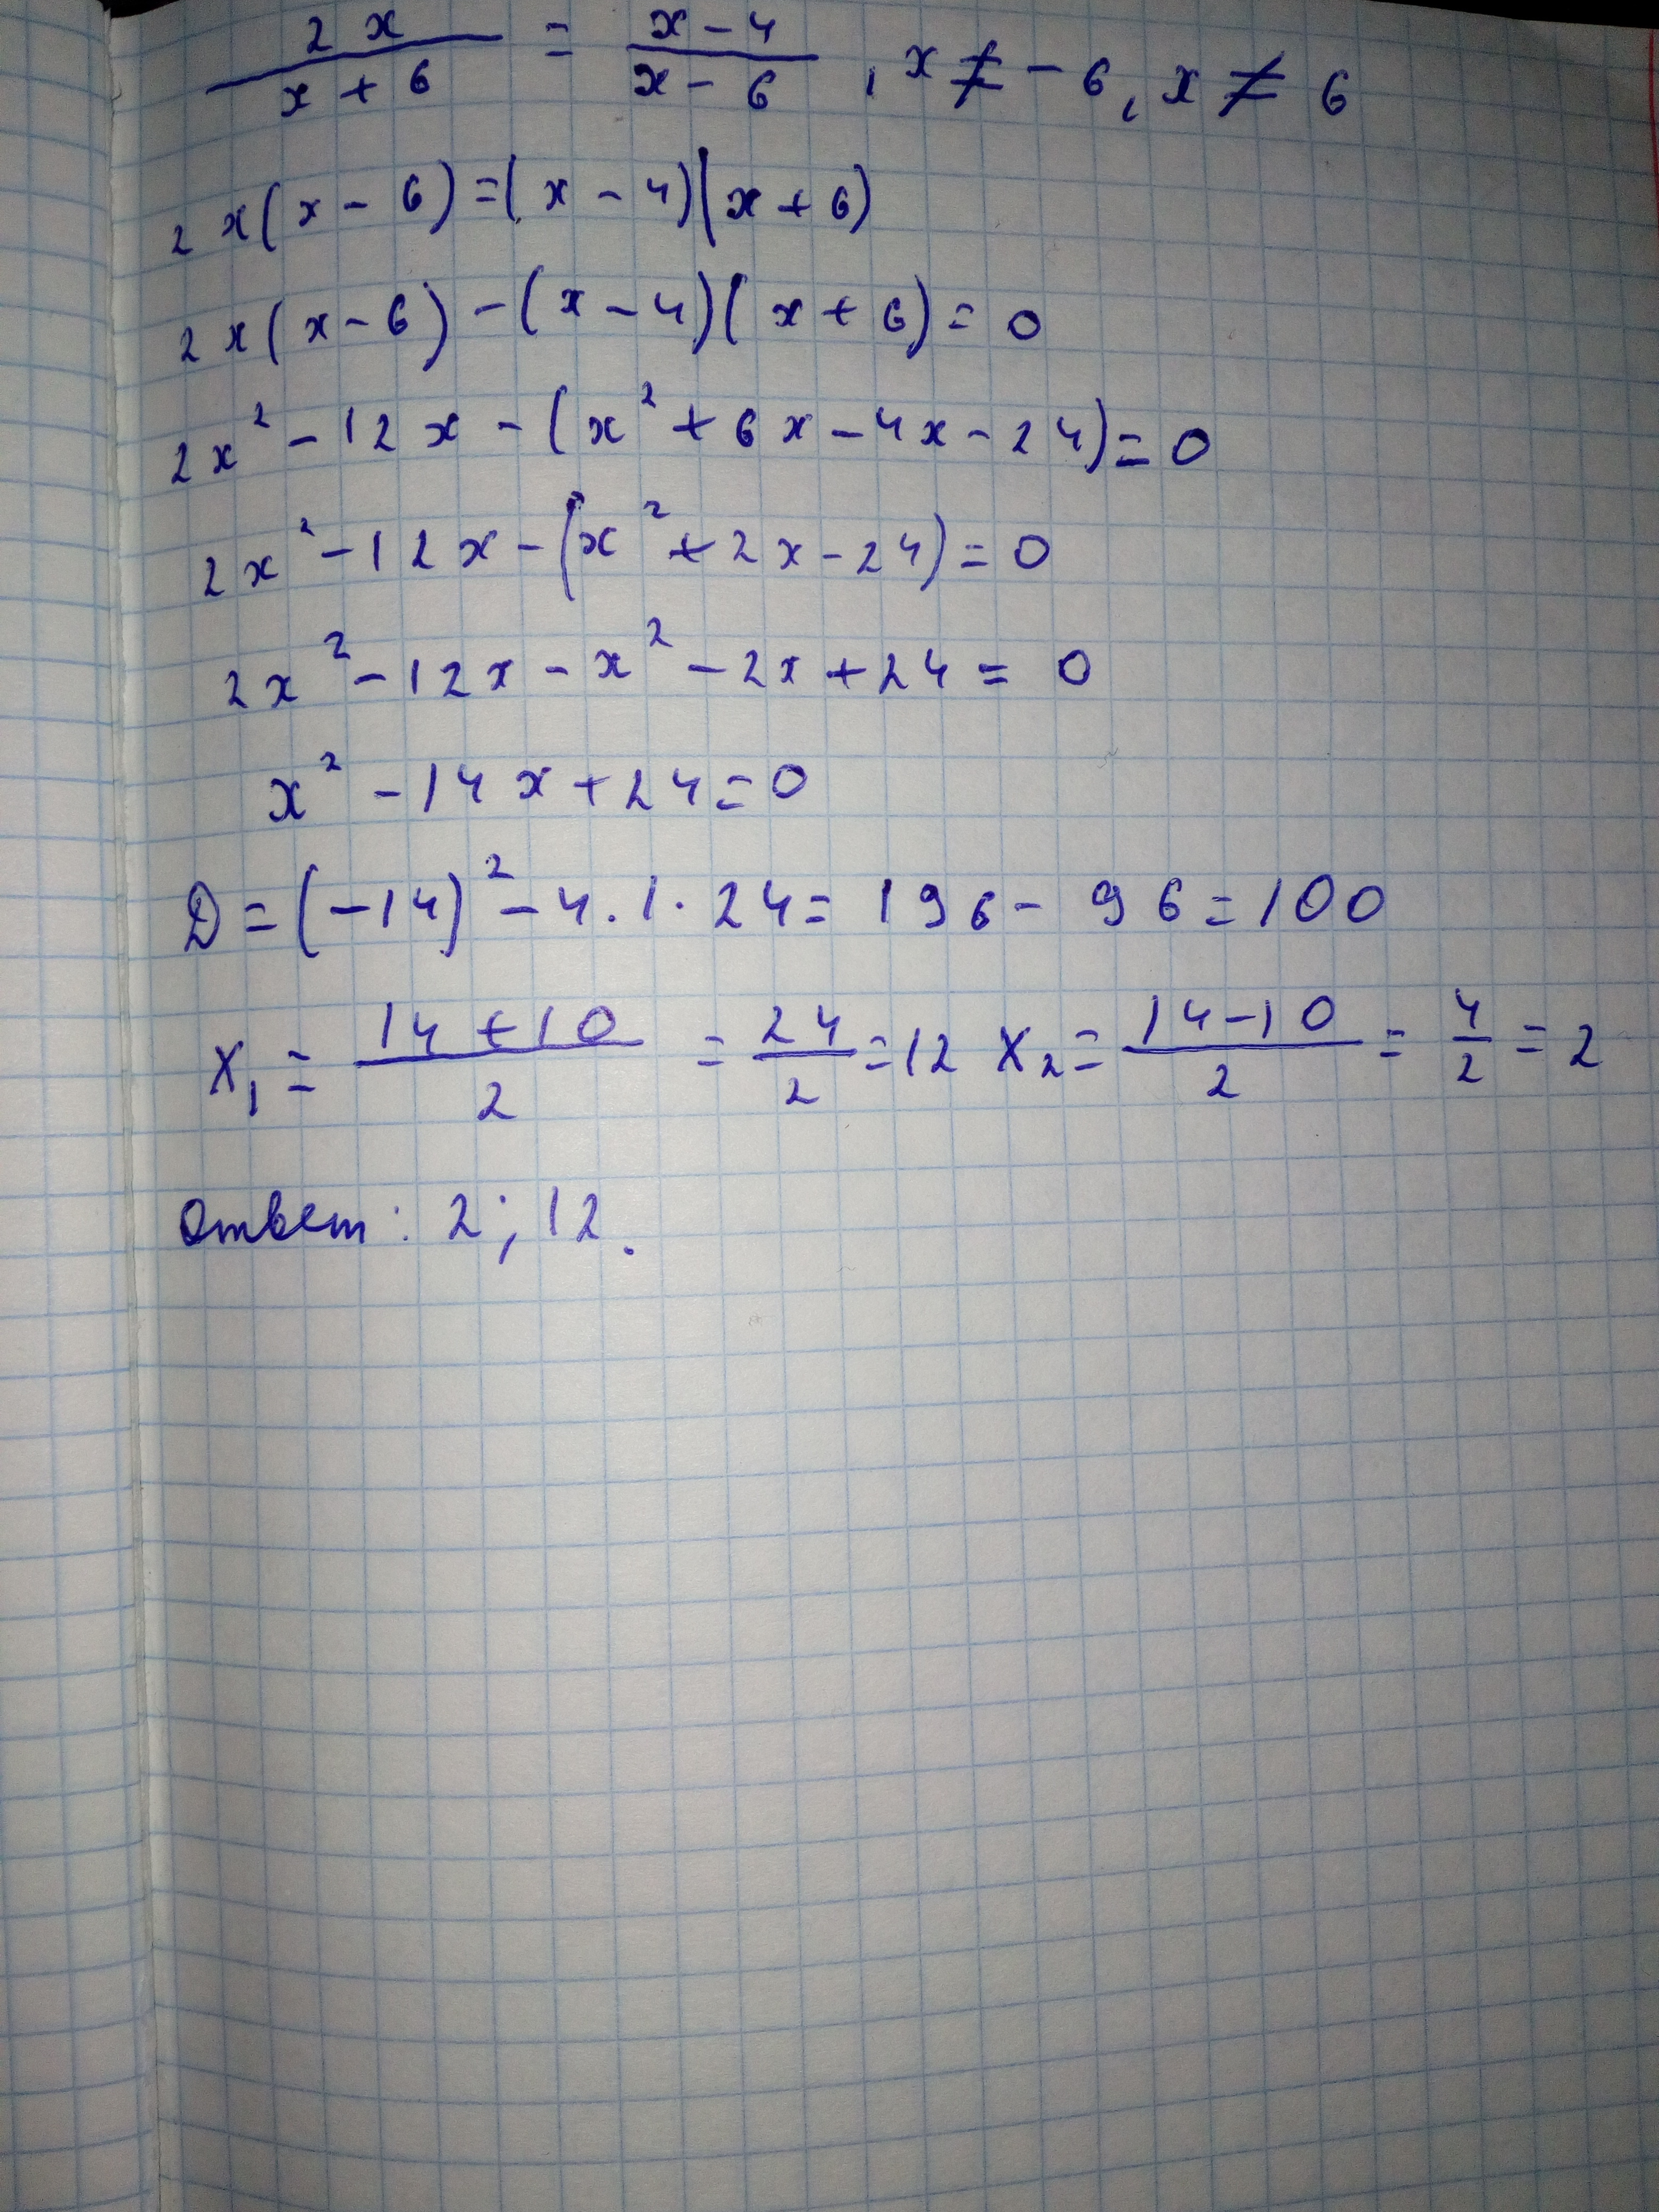 2x/(x+6) = (x-4)/(x-6), x ≠ -6, x ≠ 6
2x(x-6)=(x-4)(x+6)
2x(x-6)-(x-4)(x+6)=0
2x²-12x-(x²+6x-4x-24)=0
2x²-12x-(x²+2x-24)=0
2x²-12x-x²-2x+24=0
x²-14x+24=0
D=(-14)²-4·1·24=196-96=100
x₁=(14+10)/2=24/2=12 x₂=(14-10)/2=4/2=2
Ответ: 2; 12.